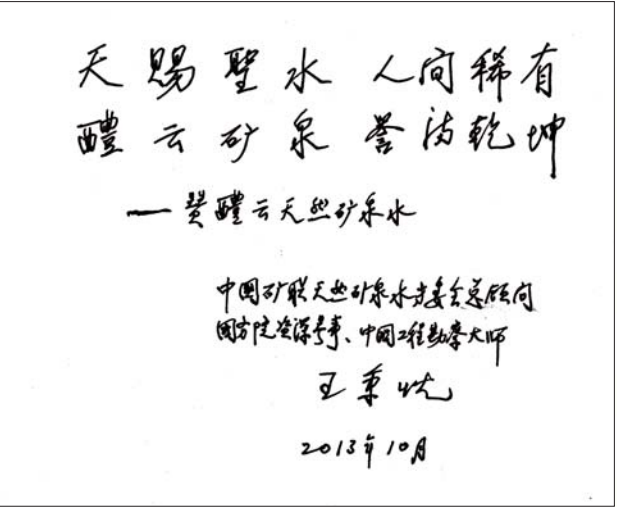 天赐聖水 人间稀有
醴云矿泉 誉满乾坤
——赞醴云天然矿泉水
中国矿联天然矿泉水专委会总顾问
国务院参事、中国工程勘察大师
王秉忱
2013年10月